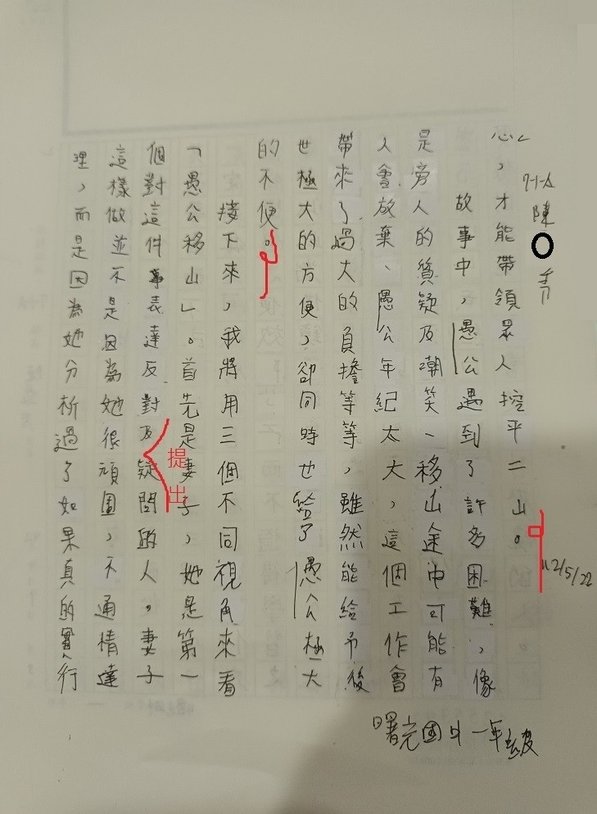 陳
112/5/22
心,才能帶領眾人挖平二山。
故事中,愚公遇到了許多困難,像
是旁人的質疑及潮笑、移山途中可能有
人會放棄、愚公年紀太大,這個工作會
帶來了過大的負擔等等,雖然能給予後
世極大的方便,卻同時也給了愚公極大
的不便。
接下來,我將用三個不同視角來看
「愚公移山」。首先是妻子,她是第一
個對這件事表達反對及疑問的人。妻子
提出
這樣做並不是因為她很頑固,不通情達
理,而是因為她分析過了如果真的實行
曙光國中一年級